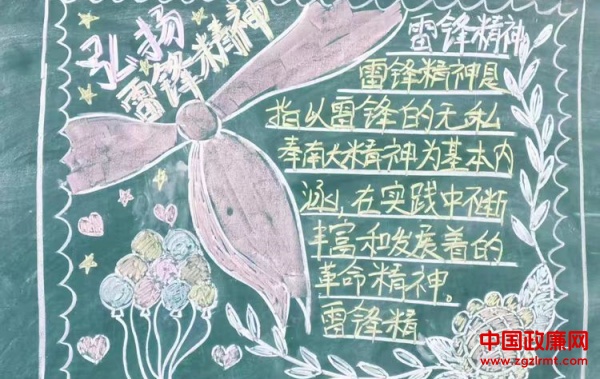 弘扬
雷锋精神
雷锋精神
雷锋精神是
指以雷锋的无私
奉献精神为基本内
涵,在实践中不断
丰富和发展着的
革命精神。
雷锋精
中国政廉网
www.zgzlrmt.com